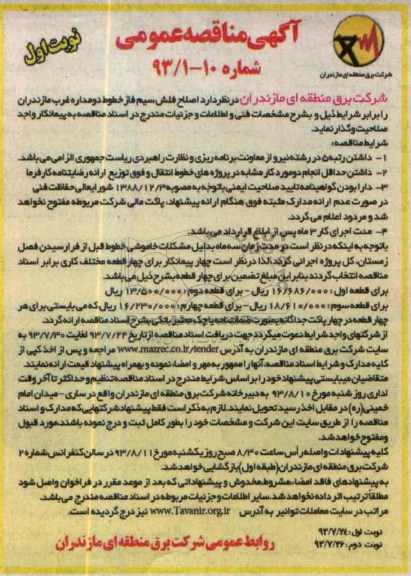 آگهی مناقصه عمومی
نوبت اول
شماره ۱۰-۹۳/۱
شرکت برق منطقه ای مازندران
شرکت برق منطقه ای مازندران در نظر دارد اصلاح فلش سیم فاز خطوط دومداره غرب مازندران
را برابر شرایط ذیل و بشرح مشخصات فنی و اطلاعات و جزئیات مندرج در اسناد مناقصه به پیمانکار واجد
صلاحیت واگذار نماید.
شرایط مناقصه:
۱- داشتن رتبه ۵ در رشته نیرو از معاونت برنامه ریزی و نظارت راهبردی ریاست جمهوری الزامی می باشد.
۲- داشتن حداقل انجام دو مورد کار مشابه در پروژه های خطوط انتقال و فوق توزیع با ارائه رضایتنامه کارفرما
۳- دارا بودن گواهینامه تایید صلاحیت ایمنی باتوجه به مصوبه ۱۳۸۸/۱۲/۳ شورایعالی حفاظت فنی
در صورت عدم ارائه مدارک مثبته فوق هنگام ارائه پیشنهاد، پاکت مالی شرکت مربوطه مفتوح نخواهد
شد و مردود اعلام می گردد.
۴- مدت اجرای کار ۳ ماه پس از ابلاغ قرارداد می باشد.
باتوجه به اینکه در نظر است در مدت زمان سه ماه بدلیل مشکلات خاموشی خطوط قبل از فرارسیدن فصل
زمستان، کل پروژه اجرائی گردد، لذا در نظر است چهار پیمانکار برای چهار قطعه مختلف کاری برابر اسناد
مناقصه انتخاب گردند بنابراین مبلغ تضمین برای چهار قطعه بشرح ذیل می باشد.
برای قطعه اول: ۱۶/۶۸۶/۰۰۰ ریال - برای قطعه دوم: ۱۳/۵۰۰/۰۰۰ ریال
برای قطعه سوم: ۱۸/۶۱۰/۰۰۰ ریال - برای قطعه چهارم: ۱۶/۲۳۰/۰۰۰ ریال که می بایستی برای هر
چهار قطعه در چهار پاکت جداگانه بصورت ضمانتنامه یا چک معتبر بانکی بشرح اسناد مناقصه ارائه گردد.
از شرکتهای واجد شرایط دعوت میگردد جهت دریافت اسناد مناقصه از تاریخ ۹۳/۷/۲۴ لغایت ۹۳/۷/۳۰ به
سایت شرکت برق منطقه ای مازندران به آدرس www.mazrec.co.ir/tender مراجعه و پس از اخذ کپی از
کلیه مدارک و شرایط اسناد مناقصه آنها را ممهور به مهر و امضاء نموده و بهمراه پیشنهاد قیمت ارائه نمایند.
متقاضیان میبایستی پیشنهاد خود را بر اساس شرایط مندرج در اسناد مناقصه تنظیم و حداکثر تا آخر وقت
اداری روز شنبه مورخ ۹۳/۸/۱۰ به دبیرخانه شرکت برق منطقه ای مازندران واقع در ساری - میدان امام
خمینی(ره) در مقابل اخذ رسید تحویل نمایند. لازم به ذکر است فقط پیشنهاد شرکتهایی که مدارک و اسناد
مناقصه را از طریق سایت این شرکت و مشخصات خود را بطور کامل ثبت و درج نموده باشند، مورد قبول
و مفتوح خواهد شد.
کلیه پیشنهادات واصله راس ساعت ۸/۳۰ صبح روز یکشنبه مورخ ۹۳/۸/۱۱ در سالن کنفرانس شماره ۲
شرکت برق منطقه ای مازندران (طبقه اول) بازگشایی خواهد شد.
به پیشنهادهای فاقد امضاء، مشروط، مخدوش و پیشنهاداتی که بعد از موعد مقرر در فراخوان واصل شود
مطلقا ترتیب اثر داده نخواهد شد. سایر اطلاعات و جزئیات مربوطه در اسناد مناقصه مندرج می باشد.
مراتب در سایت معاملات توانیر به آدرس www.Tavanir.org.ir نیز درج گردیده است.
نوبت اول: ۹۳/۷/۲۴
نوبت دوم: ۹۳/۷/۲۶
روابط عمومی شرکت برق منطقه ای مازندران